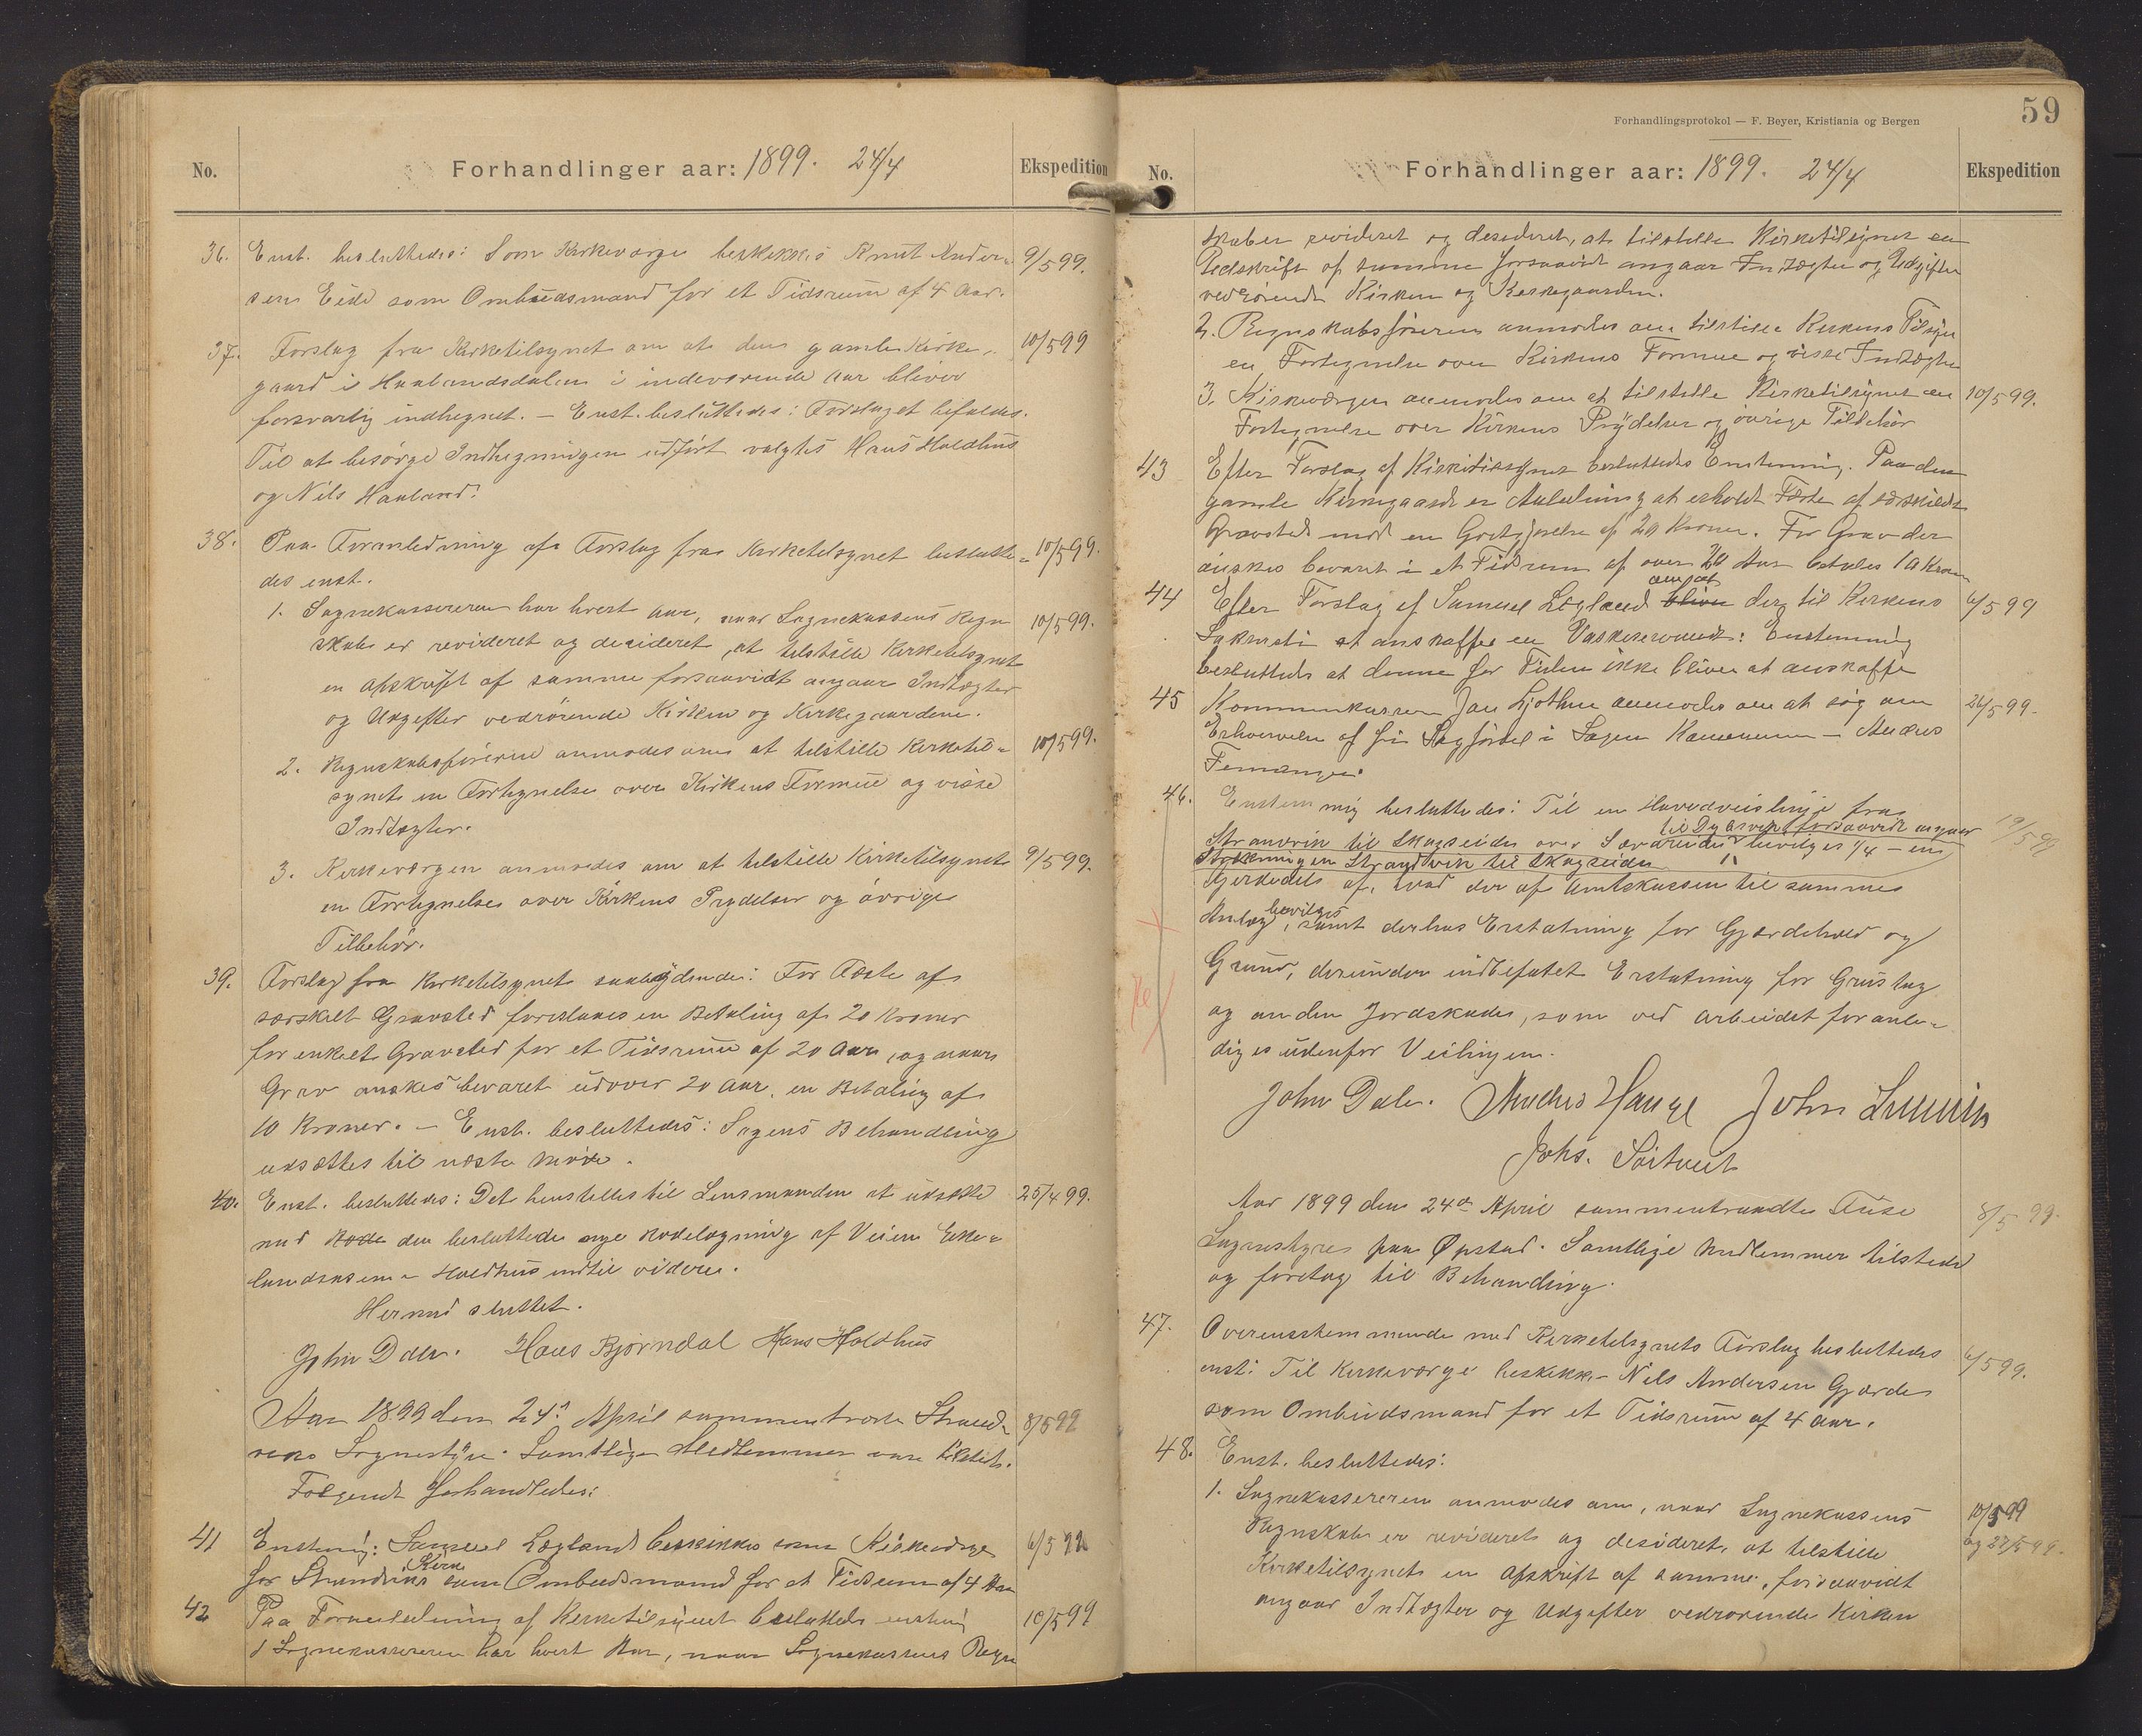 No.
Forhandlinger aar: 1899. 24/4
Ekspedition
36. Enst. besluttedes: Som Kirkeværge beskikkes Knut Ander= 9/5 99.
sen Eide som Ombudsmand for et Tidsrum af 4 Aar.
37. Forslag fra Kirketilsynet om at den gamle Kirke= 10/5 99
gaard i Haalandsdalen i indeværende Aar bliver
forsvarlig indhegnet. – Enst. besluttedes: Forslaget bifaldes.
Til at besørge Indhegningen udført valgtes Hans Holdhus
og Nils Haaland.
38. Paa Foranledning af Forslag fra Kirketilsynet beslutte= 10/5 99.
des enst.
1. Sognekassereren har hvert Aar, naar Sognekassens Regn 10/5 99.
skab er revideret og decideret, at tilstille Kirketilsynet
en Afskrift af samme forsaavidt angaar Indtægter
og Udgifter vedrørende Kirken og Kirkegaardene.
2. Regnskabsføreren anmodes om at tilstille Kirketil= 10/5 99.
synet en Fortegnelse over Kirkens Formue og visse
Indtægter.
3. Kirkeværgen anmodes om at tilstille Kirketilsynet 9/5 99.
en Fortegnelse over Kirkens Prydelser og øvrige
Tilbehør.
39. Forslag fra Kirketilsynet saalydende: For Fæste af
særskilt Gravsted foreslaaes en Betaling af 20 Kroner
for enkelt Gravsted for et Tidsrum af 20 Aar, og naar
Grav ønskes bevaret udover 20 Aar, en Betaling af
10 Kroner. – Enst. besluttedes: Sagens Behandling
udsættes til næste Møde.
40. Enst. besluttedes: Det henstilles til Lensmanden at udsætte 25/4 99.
med Rode den besluttede nye Rodelægning af Veien Eke=
landsosen – Holdhus indtil videre.
Hermed sluttet.
John Dale. Hans Bjørndal Hans Holdhus
Aar 1899 den 24de April sammentraadte Strand= 8/5 99
viks Sognestyre. Samtlige Medlemmer var tilstede.
Følgende forhandledes:
41 Enstemig: Samuel Løgland beskikkes som Kirkeværge 6/5 99
for Strandviks Kirke som Ombudsmand for et Tidsrum af 4 Aar
42 Paa Foranledning af Kirketilsynet besluttedes enstemig 10/5 99
1 Sognekassereren har hvert Aar, naar Sognekassens Regn
Forhandlingsprotokol — F. Beyer, Kristiania og Bergen
59
No.
Forhandlinger aar: 1899. 24/4
Ekspedition
skaber revideret og desideret, at tilstille Kirketilsynet en
Udskrift af samme forsaavidt angaar Indtægter og Udgifter
vedrørende Kirken og Kirkegaarden.
2. Regnskabsføreren anmodes om tilstille Kirkens Tilsyn
en Fortegnelse over Kirkens Formue og visse Indtægter
3. Kirkeværgen anmodes om at tilstille Kirketilsynet en 10/5 99.
Fortegnelse over Kirkens Prydelser og øvrige Tilbehør
43 Efter Forslag af Kirketilsynet besluttedes Enstemmig. Paa den
gamle Kirkegaard er Anledning at erholde Fæste af særskildt
Gravsted mod en Godtgjørelse af 20 Kroner. For Grav der
ønskes bevaret i et Tidsrum af over 20 Aar betales 10 Kron
44 Efter Forslag af Samuel Løgland om at bliver der til Kirkens 6/5 99
Sakristi at anskaffes en Vaskeservant: Enstemmig
besluttedes at denne for Tiden ikke bliver at anskaffe
45 Kommunekasserer Jan Ljothm anmodes om at søg om 24/5 99.
Erhvervelse af fri Sagførsel i Sagen Kommunen – Anders
Femanger.
46. Enstemmig besluttedes: Til en Hovedveislinje fra
Strandvik til Skogseidet over Sævareidet bevilges 1/4 – en 19/5 99
til Dybsvik forsaavidt angaar
Strækningen Strandvik til Skogseidet
fjerdedel af, hvad der af Amtskassen til sammes
Anlæg bevilges, samt derhos Erstatning for Gjærdehold og
Grund, derunder indbefatet Erstatning for Grustag
og anden Jordskade, som ved Arbeidet foranle=
diges udenfor Veilinjen.
John Dale. Anders Hauge John
Johs. Søitveit
Aar 1899 den 24de April sammentraadte Fuse 8/5 99.
Sognestyre paa Øpstad. Samtlige Medlemmer tilstede
og foretog til Behandling.
47. Overensstemmende med Kirketilsynets Forslag besluttedes 6/5 99.
enst: Til Kirkeværge beskikkes Nils Andersen Gjærde
som Ombudsmand for et Tidsrum af 4 Aar.
48. Enst. besluttedes:
1. Sognekassereren anmodes om, naar Sognekassens 10/5 99
Regnskab er revideret og desideret, at tilstille og 23/5 99.
Kirketilsynet en Afskrift af samme, forsaavidt
angaar Indtægter og Udgifter vedrørende Kirken